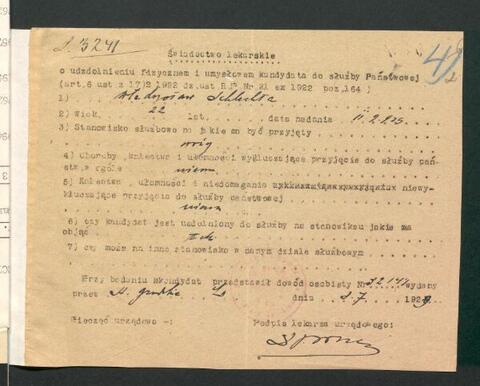 L. 3241
42
Świadectwo lekarskie
o uzdolnieniu fizycznem i umysłowem kandydata do służby Państwowej
(art.6 ust z 17/2 1922 dz.ust R.P. Nr 21 ex 1922 poz.164 )
1) Władysław
2) Wiek. 22 lat, data badania
3) Stanowisko służbowe na jakie ma być przyjęty
4) Choroby, kalectwa i ułomności wykluczające przyjęcie do służby pań-
stw. w ogóle niema
5) Kalectwa, ułomności i niedomagania niewy-
kluczające przyjęcia do służby państwowej
niema
6) czy kandydat jest uzdolniony do służby na stanowisku jakie ma
objąć tak
7) czy może na inne stanowisko w danym dziale służbowym
Przy badaniu kandydat przedstawił dowód osobisty Nr wydany
przez dnia 2.7. 192
Pieczęć urzędowa -:
Podpis lekarza urzędowego: